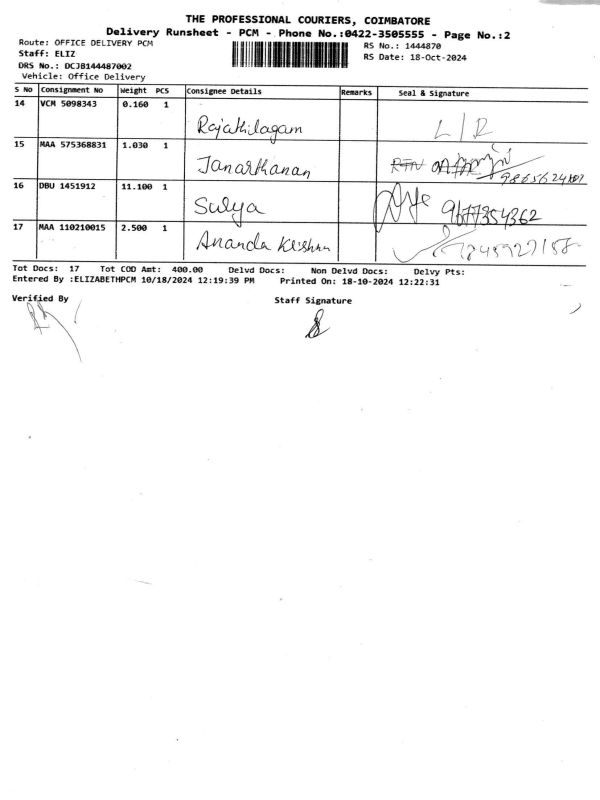 THE PROFESSIONAL COURIERS, COIMBATORE
Delivery Runsheet - PCM - Phone No.:0422-3505555 - Page No.:2
Route: OFFICE DELIVERY PCM
Staff: ELIZ
DRS No.: DCJB144487002
Vehicle: Office Delivery
RS No.: 1444870
RS Date: 18-Oct-2024
S No Consignment No Weight PCS Consignee Details Remarks Seal & Signature
14 VCM 5098343 0.160 1 Rajathilagam L/R
15 MAA 575368831 1.030 1 Janarthanan RTN
16 DBU 1451912 11.100 1 Surya 9677354362
17 MAA 110210015 2.500 1 Ananda Krishnn
Tot Docs: 17 Tot COD Amt: 400.00 Delvd Docs: Non Delvd Docs: Delvy Pts:
Entered By :ELIZABETHPCM 10/18/2024 12:19:39 PM Printed On: 18-10-2024 12:22:31
Verified By Staff Signature